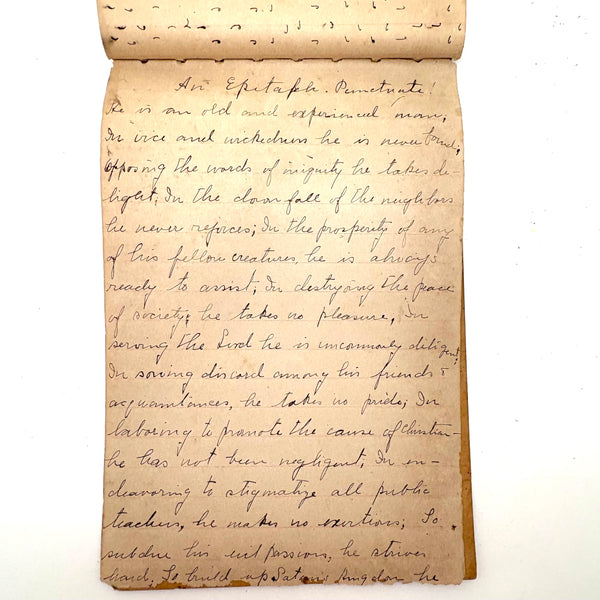 An Epitaph. Punctuate!
He is an old and experienced man,
In vice and wickedness he is never found;
Opposing the words of iniquity he takes de-
light, In the downfall of the neighbors
he never rejoices; In the prosperity of any
of his fellow creatures, he is always
ready to assist; In destroying the peace
of society; he takes no pleasure, In
serving the Lord he is uncommonly diligent;
In sowing discord among his friends &
acquaintances, he takes no pride; In
laboring to promote the cause of Christian-
he has not been negligent, In en-
deavoring to stigmatize all public
teachers, he makes no exertions; To
subdue his evil passions, he strives
hard, To build up Satan's kingdom he